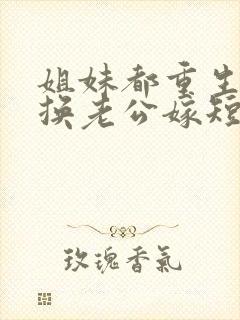 姐妹都重生
换老公嫁短
玫瑰香氣